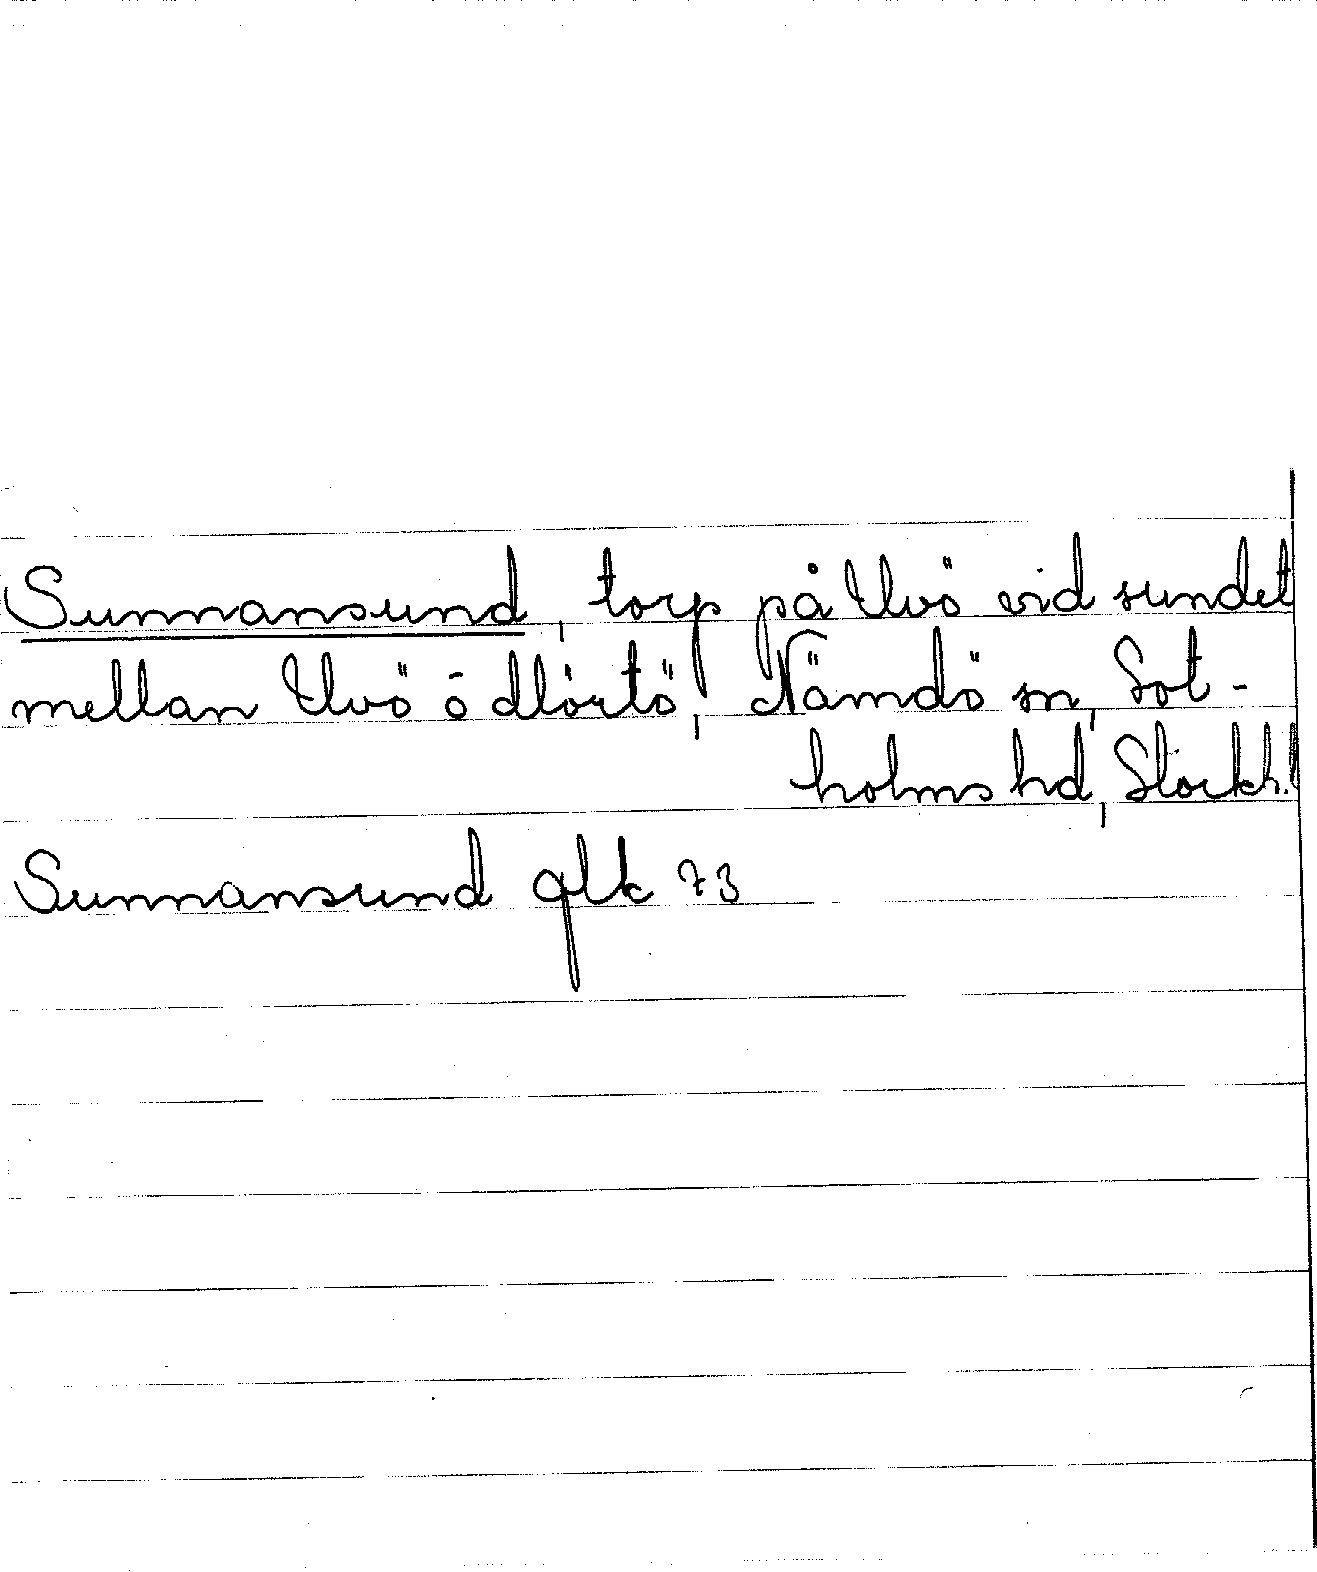 Sunnansund, torp på Uvö vid sundet
mellan Uvö ō Mörtö, Nämdö sn, Sot-
holms hd, Stockh. l
Sunnansund glk 73